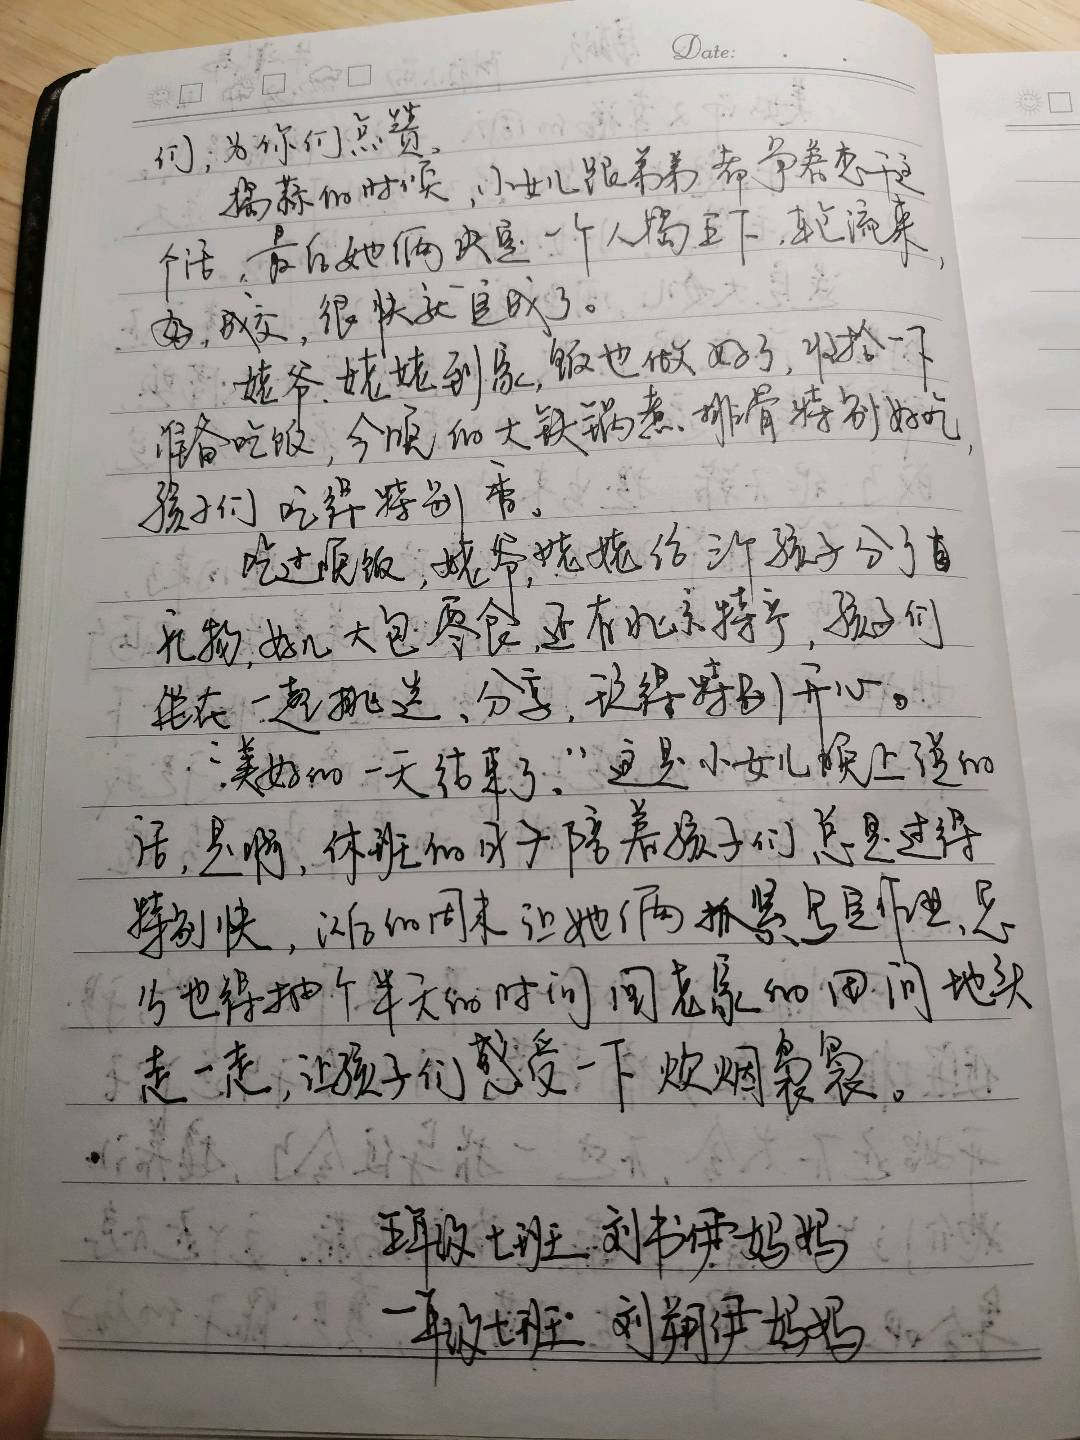 Date:
们，为你们点赞。
捣蒜的时候，小女儿跟弟弟都争着想干这
个活，最后她俩决定一个人捣五下，轮流来，
成交，很快就完成了。
姥爷、姥姥到家，饭也做好了，收拾一下
准备吃饭，今晚的大铁锅煮排骨特别好吃，
孩子们吃得特别香。
吃过晚饭，姥爷，姥姥给三个孩子分了
礼物，好几大包零食，还有北京特产，孩子们
坐在一起挑选、分享，玩得特别开心。
“美好的一天结束了。”这是小女儿晚上说的
话，是啊，休班的日子陪着孩子们总是过得
特别快，以后的周末让她俩抓紧写完作业，怎
么也得抽个半天的时间回老家的田间地头
走一走，让孩子们感受一下炊烟袅袅。
五年级七班 刘书伊妈妈
一年级七班 刘翔伊妈妈